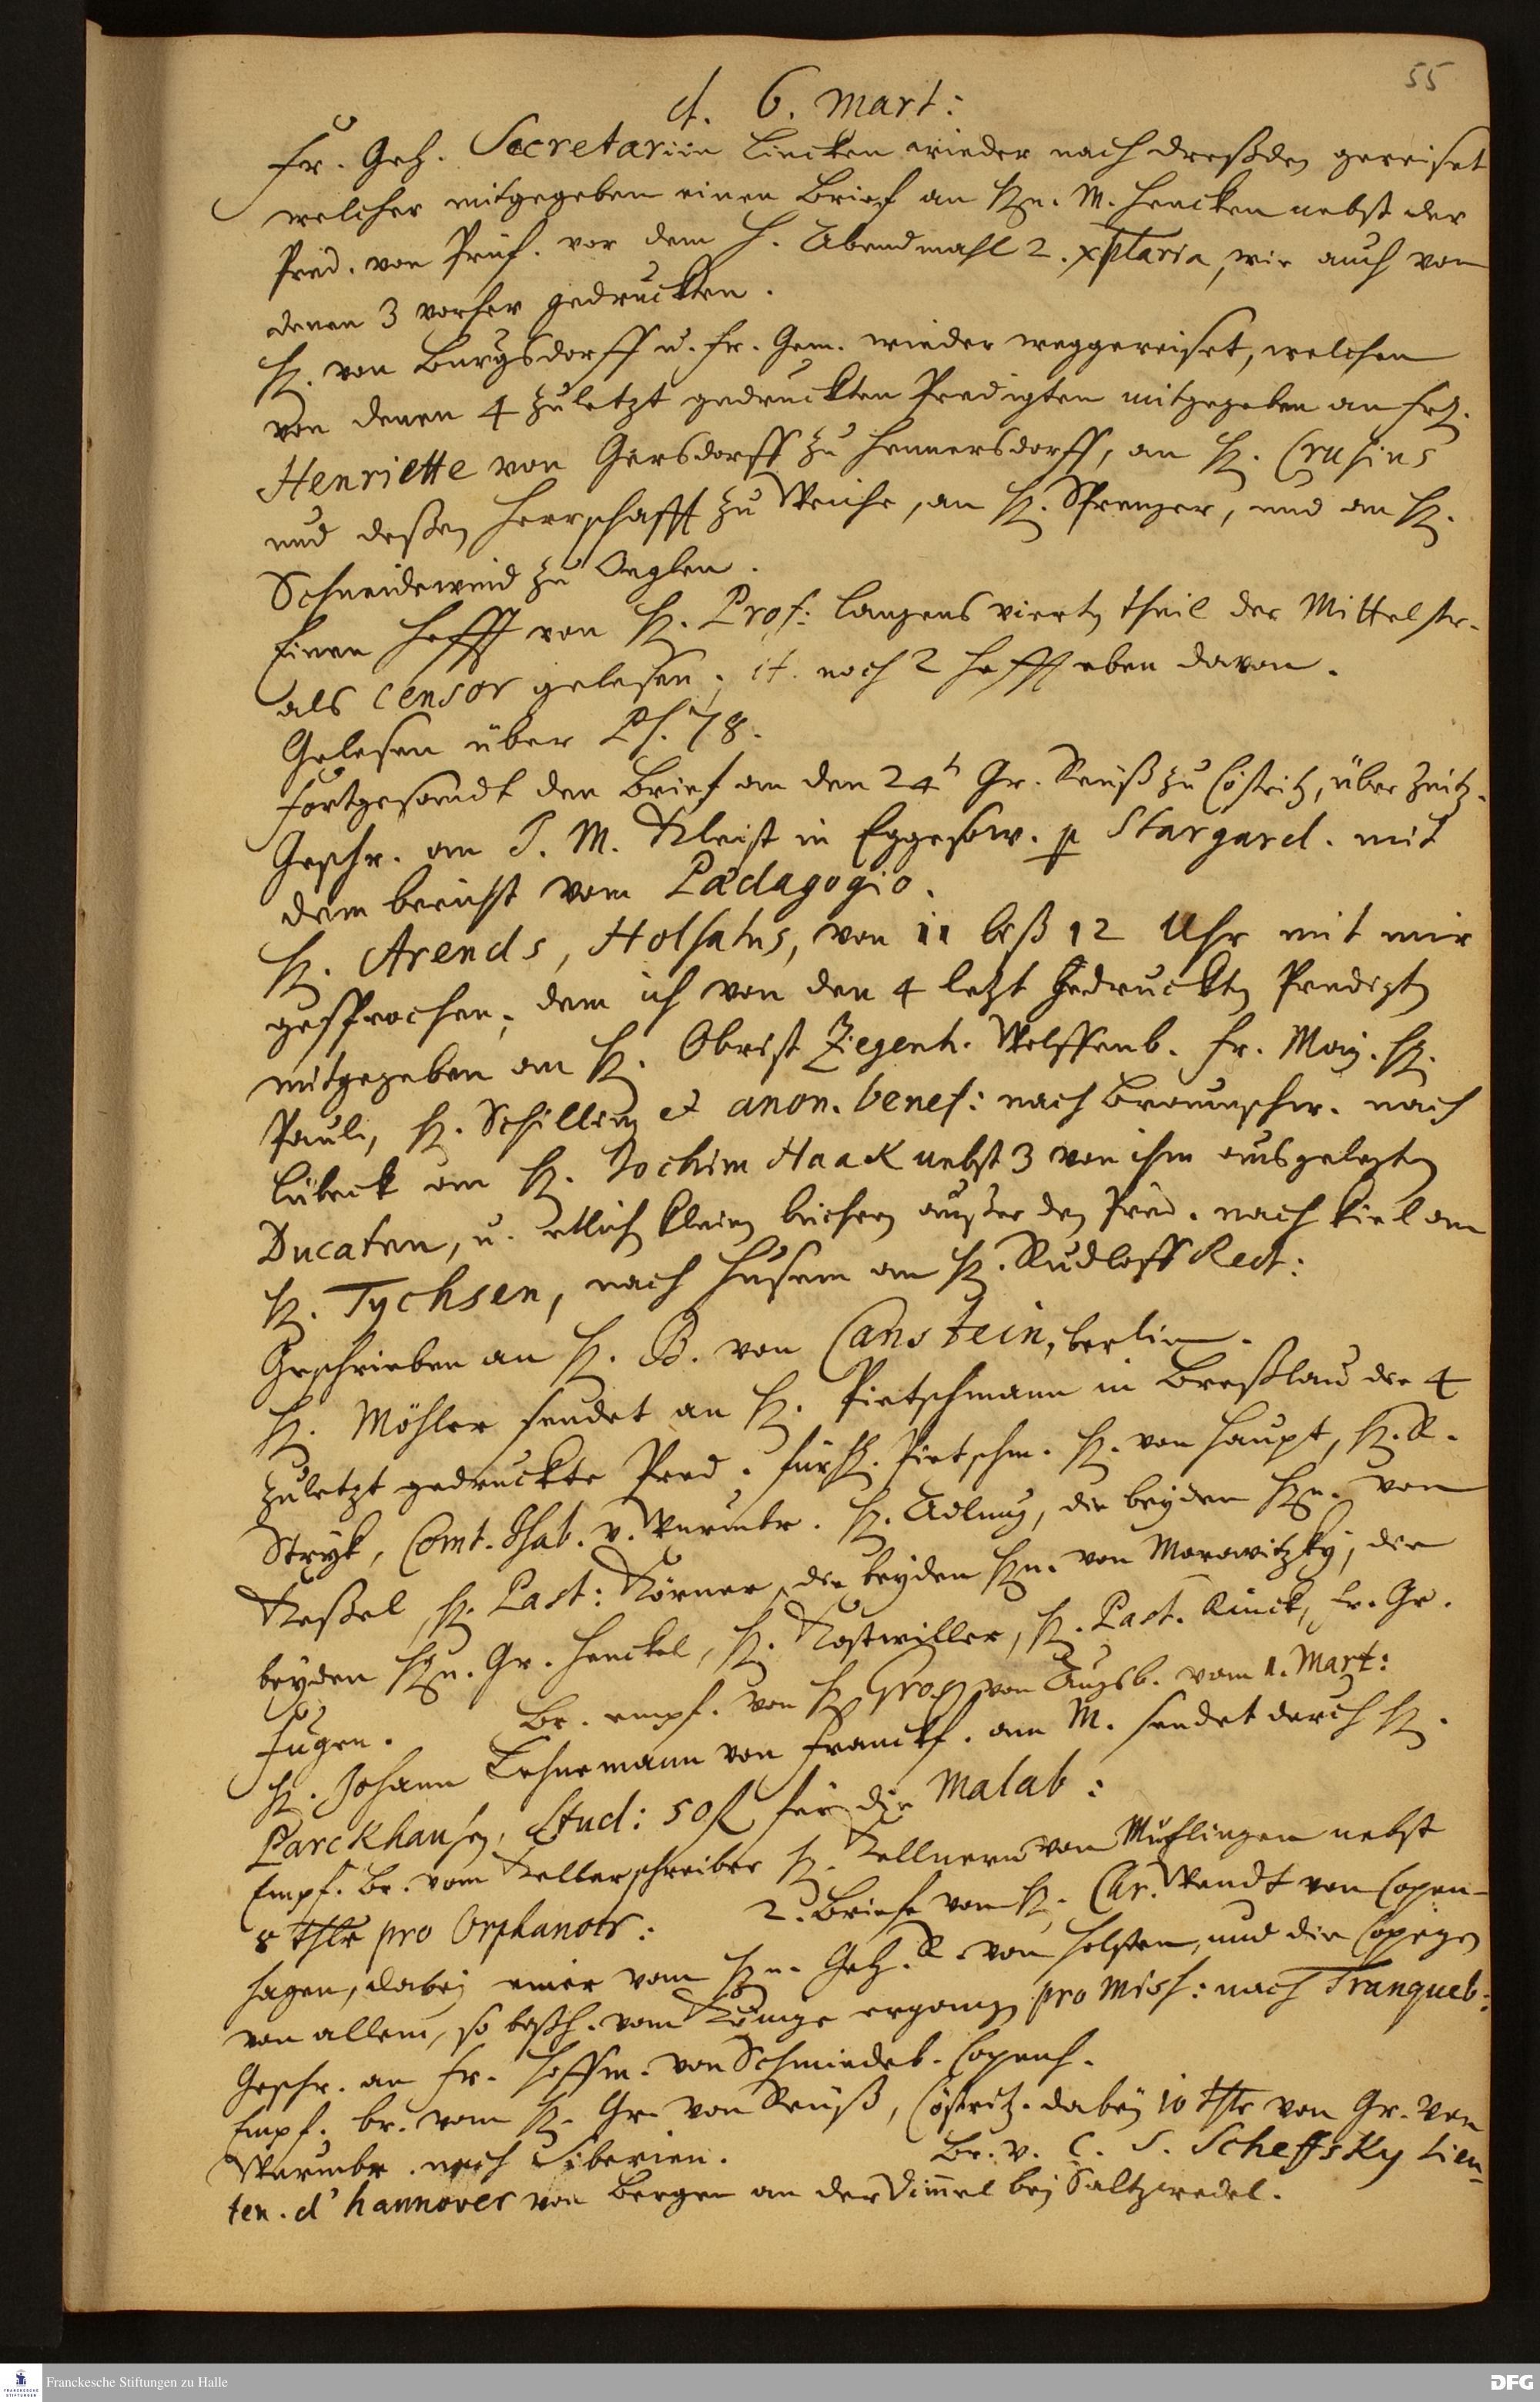 55
d. 6. Mart:
Fr. Geh. Secretariin Lincken wieder nach Dreßden gereiset
welcher mitgegeben einen Brief an Hn. M. Hencken nebst der
Pred. von Prüf. vor dem H. Abendmahl 2. xplaria, wie auch von
denen 3 vorher gedruckten.
H. von Burgsdorff u. Fr. Gem. wieder weggereiset, welchen
von denen 4 zuletzt gedruckten Predigten mitgegeben an Frl.
Henriette von Gersdorff zu Hennersdorff, an H. Crusius
und deßen Herrschafft zu Reuhe, an H. Sprenger, und an H.
Schneidewind zu Oeglen.
Einen Hefft von H. Prof: Langens vierten theil der Mittelstr.
als Censor gelesen; it. noch 2 Hefft eben davon.
Gelesen über Ps. 78.
Fortgesandt den Brief an den 24t Gr. Reuß zu Cöstritz, über Zeitz.
Geschr. an T. M. Kleist in Eggesow. p Stargard. mit
dem bericht vom Pædagogio.
H. Arends, Holsatus, von 11 biß 12 Uhr mit mir
gesprochen; dem ich von den 4 letzt gedruckten Predigten
mitgegeben an H. Obrist Ziegenh. Wolffenb. Fr. Maj. H.
Pauli, H. Schilling et anon. benef: nach Braunschw. nach
Lübeck an H. Jochim Haack nebst 3 von ihm ausgelegten
Ducaten, u. etlich kleinen büchern außer den Pred. nach Kiel an
H. Tychsen, nach Husum an H. Rudloff Rect:
Geschrieben an H. B. von Canstein, berlin.
H. Möhler sendet an H. Pietschmann in Breßlau die 4
zuletzt gedruckte Pred. für H. Pietschm. H. von Haupt, H. R.
Stryk, Comt. Thab. v. Wurmbr. H. Adlung, die beyden Hn. von
Keßel, H. Past: Körner, die beyden Hn. von Morawitzky, die
beyden Hn. Gr. Henckel, H. Rostwiller, H. Past. Rinck, Fr. Gr.
Fugen. Br. empf. von H. Grop von Augsb. vom 1. Mart:
H. Johann Lehnemann von Franckf. am M. sendet durch H.
Parckhausen, Stud: 50 fl für die Malab:
Empf. Br. vom Kellerschreiber H. Kellnern von Mutlingen nebst
8 thlr pro Orphanotr: 2. Briefe vom H. Chr. Wendt von Copen-
hagen, dabey einer vom Hn. Geh. R. von Holsten, und die Copeyen
von allem, so beßh. vom Könige ergangen pro Miss: nach Tranqueb:
Geschr. an Fr. Hoffm. von Schmiedeb. Copenh.
Empf. br. vom H. Gr. von Reuß, Cöstritz. dabey 10 thlr von Gr. von
Wurmbr. nach Siberien. Br. v. C. S. Scheffsky Lieu-
ten. d'hannover von Bergen an der Dummel bey Saltzwedel.
Franckesche Stiftungen zu Halle
DFG